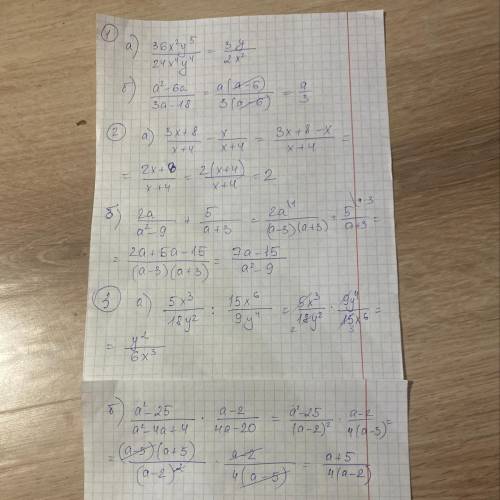 1) а) 36x²y⁵/24x⁴y⁴ = 3y/2x²
б) a²-6a/3a-18 = a(a-6)/3(a-6) = a/3
2) а) 3x+8/x+4 - x/x+4 = 3x+8-x/x+4 =
= 2x+8/x+4 = 2(x+4)/x+4 = 2
б) 2a/a²-9 + 5/a+3 = 2a\1/(a-3)(a+3) + 5\a-3/a+3 =
= 2a+5a-15/(a-3)(a+3) = 7a-15/a²-9
3) а) 5x³/18y² : 15x⁶/9y⁴ = 5x³/18y² · 9y⁴/15x⁶ =
= y²/6x³
б) a²-25/a²-4a+4 · a-2/4a-20 = a²-25/(a-2)² · a-2/4(a-5) =
= (a-5)(a+5)/(a-2)² · a-2/4(a-5) = a+5/4(a-2)